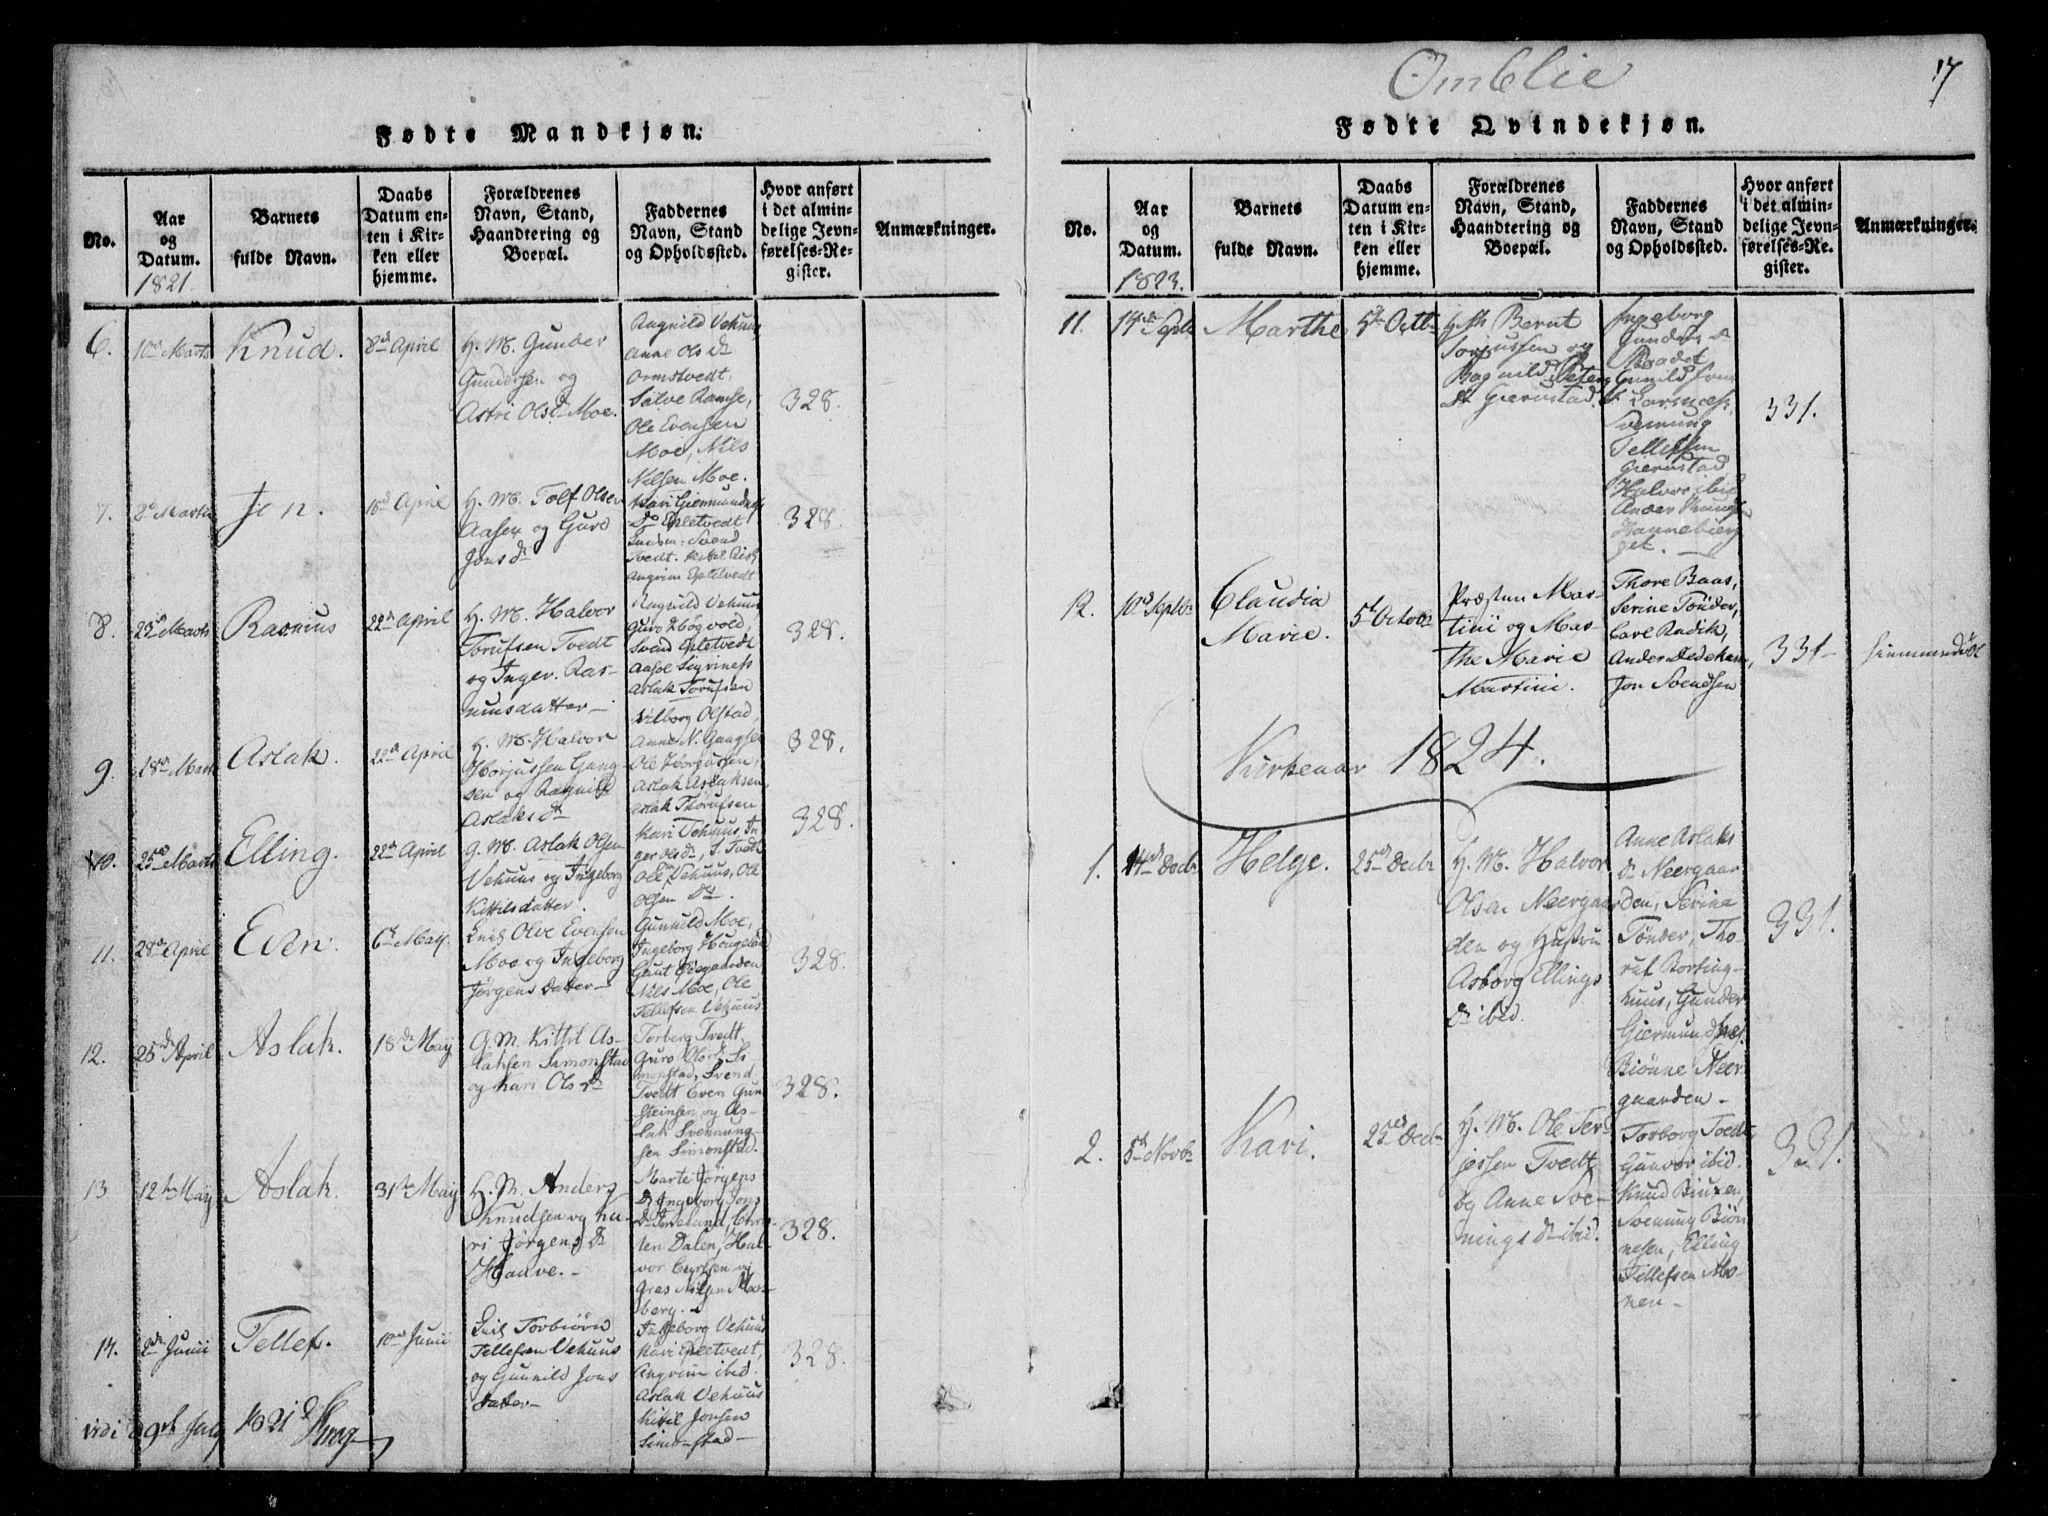 Omblie
17
Fødte Mandkjøn.
No.
Aar
og
Datum.
1821
Barnets
fulde Navn.
Daabs
Datum en-
ten i Kir-
ken eller
hjemme.
Forældrenes
Navn, Stand,
Haandtering og
Boepæl.
Faddernes
Navn, Stand
og Opholdssted.
Hvor anført
i det almin-
delige Jevn-
førelses-Re-
gister.
Anmærkninger.
6.
10de Marts
Knud.
8de April
H. M. Gunder
Gundersen og
Astri Olsdr Moe.
Ragnild Vehuus,
Anne Olsdr
Ormstvedt,
Salve Ramse,
Ole Evensen
Moe, Nils
Nilsen Moe.
328.
7.
8de Marts
Jon.
15de April
H. M. Tolf Olsen
Aasen og Guro
Jonsdr
Svend
Tvedt.
Angrim Epletvedt
328.
8.
25de Marts
Rasmus
22de April
H. M. Halvor
Torufsen Tvedt
og Inger. Ras-
musdatter –
Ragnild Vehuus,
Guro Høgvold,
Svend Epletvedt
Aslak Torufsen
328.
9.
18de Marts
Aslak.
22de April
H. M. Halvor
Gang-
sen og Ragnild
Aslaksdr
Vilborg Olstad,
Anne N. Gangsen
Aslak Aslaksen
Aslak Thorufsen
328.
10.
25de Marts
Elling.
22de April
G. M. Aslak Olsen
Vehuus og Ingeborg
Kittilsdatter.
Kari Vehuus, In-
ger Olsdr, S. Tvedt
Ole Vehuus, Ole
Olsen Do.
328.
11.
28de April
Even.
6te May.
Inds. Olve Evensen
Moe og Ingeborg
Jørgensdatter –
Gunuld Moe,
Ingeborg Hougeland
Gaut Ødegaarden
Nils Moe, Ole
Tellefsen Vehuus
328.
12.
25de April
Aslak.
13de May
G. M. Kittil As-
laksen Simonstad
og Kari Olsdr
Torberg Tvedt,
Guro Olsdr Si-
monstad, Svend
Tvedt Even Gun-
steinsen og As-
lak Svennung-
sen Simonstad.
328.
13
12te May
Aslak.
31te May
H. M. Anders
Knudsen og Ka-
ri Jørgensdr
Haave. –
Marte Jørgens
dr Ingeborg Jons
dr
Dalen, Hal-
vor
berg.
328.
14.
2de Junii
Tellef.
10de Junii
Inds. Torbiørn
Tellefsen Vehuus
og Gunnild Jons
datter –
Ingeborg Vehuus
Kari Epletvedt,
Angrim ibid.
Aslak Vehuus
Kitil Jonsen
Simonstad –
328.
vidi d 9de July 1821
Fødte Qvindekjøn.
No.
Aar
og
Datum.
1823.
Barnets
fulde Navn.
Daabs
Datum en-
ten i Kir-
ken eller
hjemme.
Forældrenes
Navn, Stand,
Haandtering og
Boepæl.
Faddernes
Navn, Stand
og Opholdssted.
Hvor anført
i det almin-
delige Jevn-
førelses-Re-
gister.
Anmærkninger.
11.
14de Septbr
Marthe
5te Octbr
H. M. Bernt
og
Ragnild Peters
dr Gierustad.
Ingeborg
Gunders dr
Raadet
Gunild
Svennung
Tellefsen
Gierustad
Halvor ibid
Hannebierg-
get. –
331.
12.
10de Septbr
Claudia
Marie.
5te Octobr
Præsten Mar-
tini og Mar-
the Marie
Martini.
Thore Baas,
Serine Tønder,
Carl Radik,
Anders Dedekam,
Jon Svendsen
331
hiemmedøbt
Kirkeaar 1824.
1.
14de Decbr
Helge.
25de Decbr
H. M. Halvor
Olsen Neergaar-
den og Hustru
Asborg Ellings
dr ibid.
Anne Aslaks
dr Neergaar-
den, Serine
Tønder, Tho-
rut Borting-
huus, Gunder
Giermundsnes.
Biønne Neer-
gaarden –
331.
2.
5te Novbr
Kari.
25de Decbr
H. M. Ole Ter-
jessen Tvedt
og Anne Sve-
nungsdr ibid.
Torborg Tvedt
Gunvor ibid.
Knud
Svenung Biøn-
nesen, Elling
Tellefsen Mo-
nen –
331.